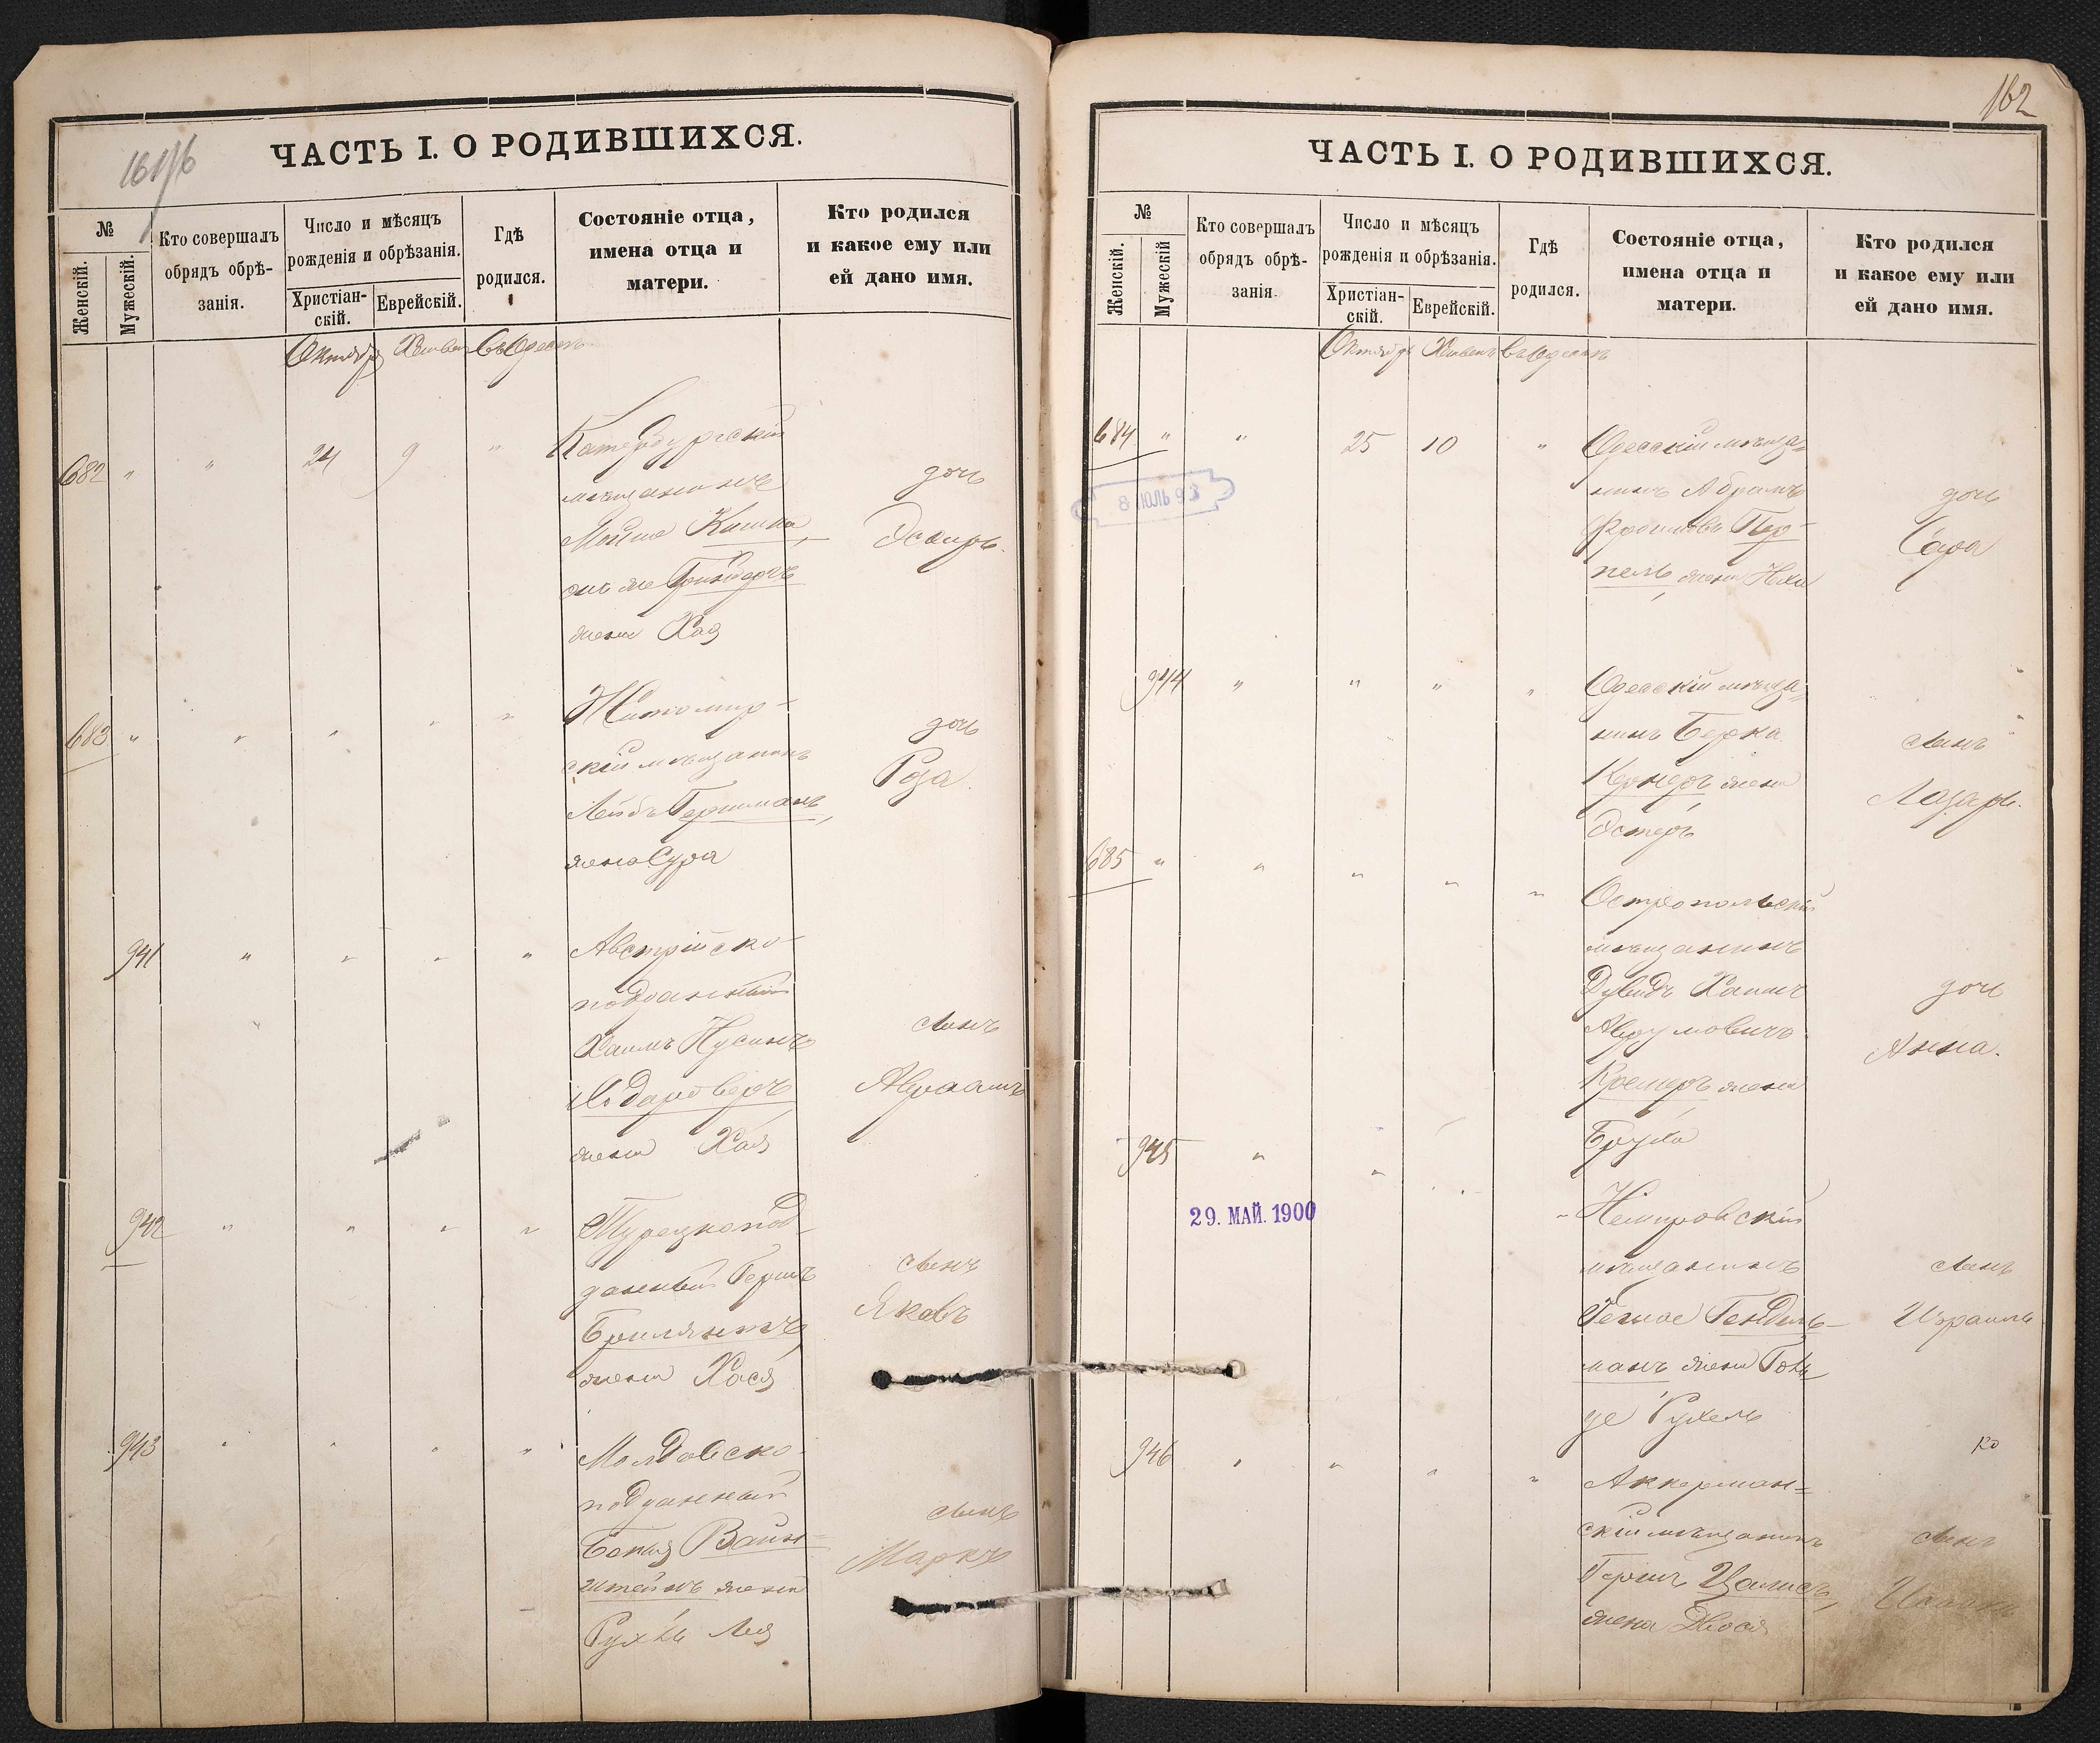 ЧАСТЬ I. О РОДИВШИХСЯ.
№
Женскій.
Мужескій.
Кто совершалъ
обрядъ обрѣ-
занія.
Число и мѣсяцъ
рожденія и обрѣзанія.
Христіан-
скій.
Еврейскій.
Гдѣ
родился.
Состояніе отца,
имена отца и
матери.
Кто родился
и какое ему или
ей дано имя.
Октябрь Хешван въ Одессѣ
682 " " 24 9 "
мѣщанинъ
Мойше
онъ же
жена Хая
дочь
Эсѳирь.
683 " " " " "
Житомир-
скій мѣщанинъ
Лейбъ Гершманъ,
жена Сура
дочь
Роза.
941 " " " "
Австрійско-
подданный
Хаимъ Нусинъ
жена Хая
сынъ
Авраамъ
942 " " " "
Турецкопод-
данный Гершъ
Брилянтъ,
жена Хася
сынъ
Яковъ
943 " " " "
Молдавско-
подданный
Вайн-
штейнъ жена
Рухль Лея
сынъ
Маркъ
162
ЧАСТЬ I. О РОДИВШИХСЯ.
№
Женскій.
Мужескій
Кто совершалъ
обрядъ обрѣ-
занія.
Число и мѣсяцъ
рожденія и обрѣзанія.
Христіан-
скій.
Еврейскій.
Гдѣ
родился.
Состояніе отца,
имена отца и
матери.
Кто родился
и какое ему или
ей дано имя.
Октябрь Хешванъ въ Одессѣ
684 " " 25 10 "
8 ІЮЛЬ 93
Одесскій мѣща=
нинъ Абрамъ
Фроимовъ Пер-
пель, жена
дочь
Сара
944 " " " "
Одесскій мѣща=
нинъ Берка
Кернеръ жена
Эстеръ
сынъ
Лазарь.
685 " " " " "
Остропольскій
мѣщанинъ
Дувидъ Хаимъ
Аврумовичъ
Кремеръ жена
Бруха
дочь
Анна.
945 " "
29. МАЙ. 1900
Немировскій
мѣщанинъ
Гендель-
манъ жена
Рухель
сынъ
Израиль
946 " " " "
Аккерман=
скій мѣщанинъ
Гершъ
жена Двося
сынъ